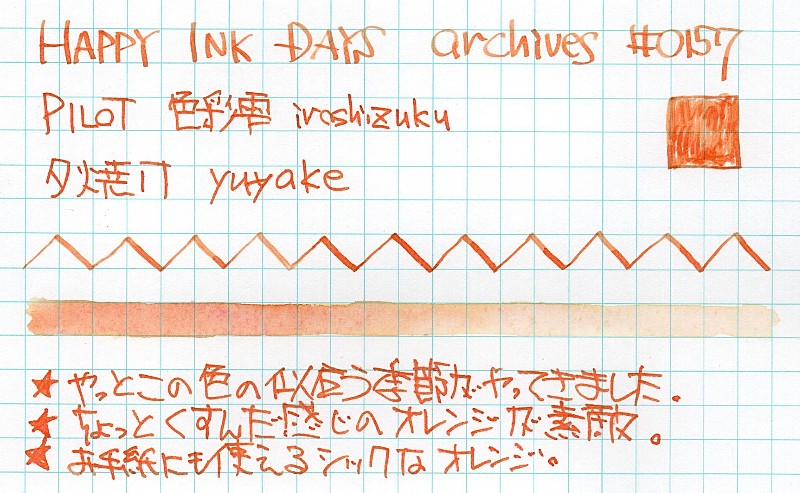 HAPPY INK DAYS archives #0157
PILOT 色彩雫 iroshizuku
夕焼け yuyake
★ やっとこの色の似合う季節がやってきました。
★ ちょっとくすんだ感じのオレンジが素敵。
★ お手紙にも使えるシックなオレンジ。